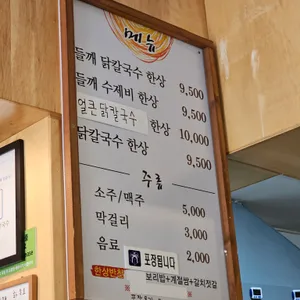 메뉴
들깨 닭칼국수 한상 9,500
들깨 수제비 한상 9,500
얼큰닭칼국수 한상 10,000
닭칼국수 한상 9,500
주류
소주/맥주 5,000
막걸리 3,000
음료 2,000
포장됩니다
한상반찬
보리밥+계절쌈+갈치젓갈